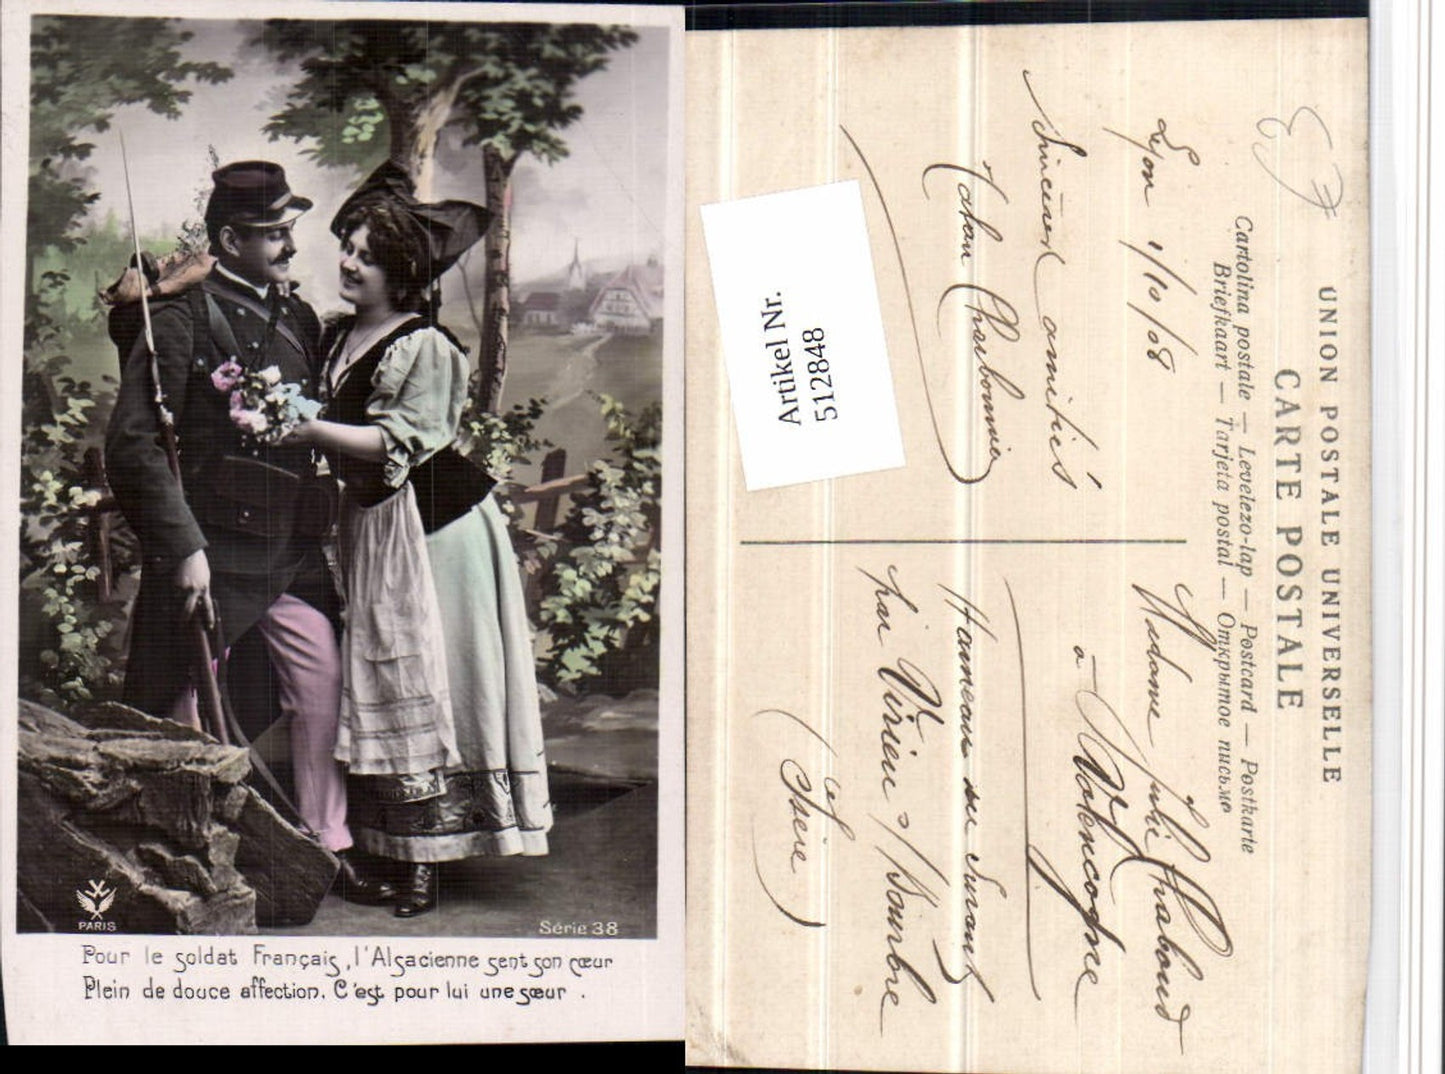 PARIS
Série 38
Pour le soldat Français, l'Alsacienne sent son cœur
Plein de douce affection. C'est pour lui une sœur.
UNION POSTALE UNIVERSELLE
CARTE POSTALE
Cartolina postale — Levelezo-lap — Postcard — Postkarte
Briefkaart — Tarjeta postal — Открытое письмо
Lyon 1/10/08
Sincères amitiés
Charbonnier
Artikel Nr.
512848
Madame Julie Chaboud
à Valencogne
Hameau du
par Virieu s/ Bourbre
(Isère)